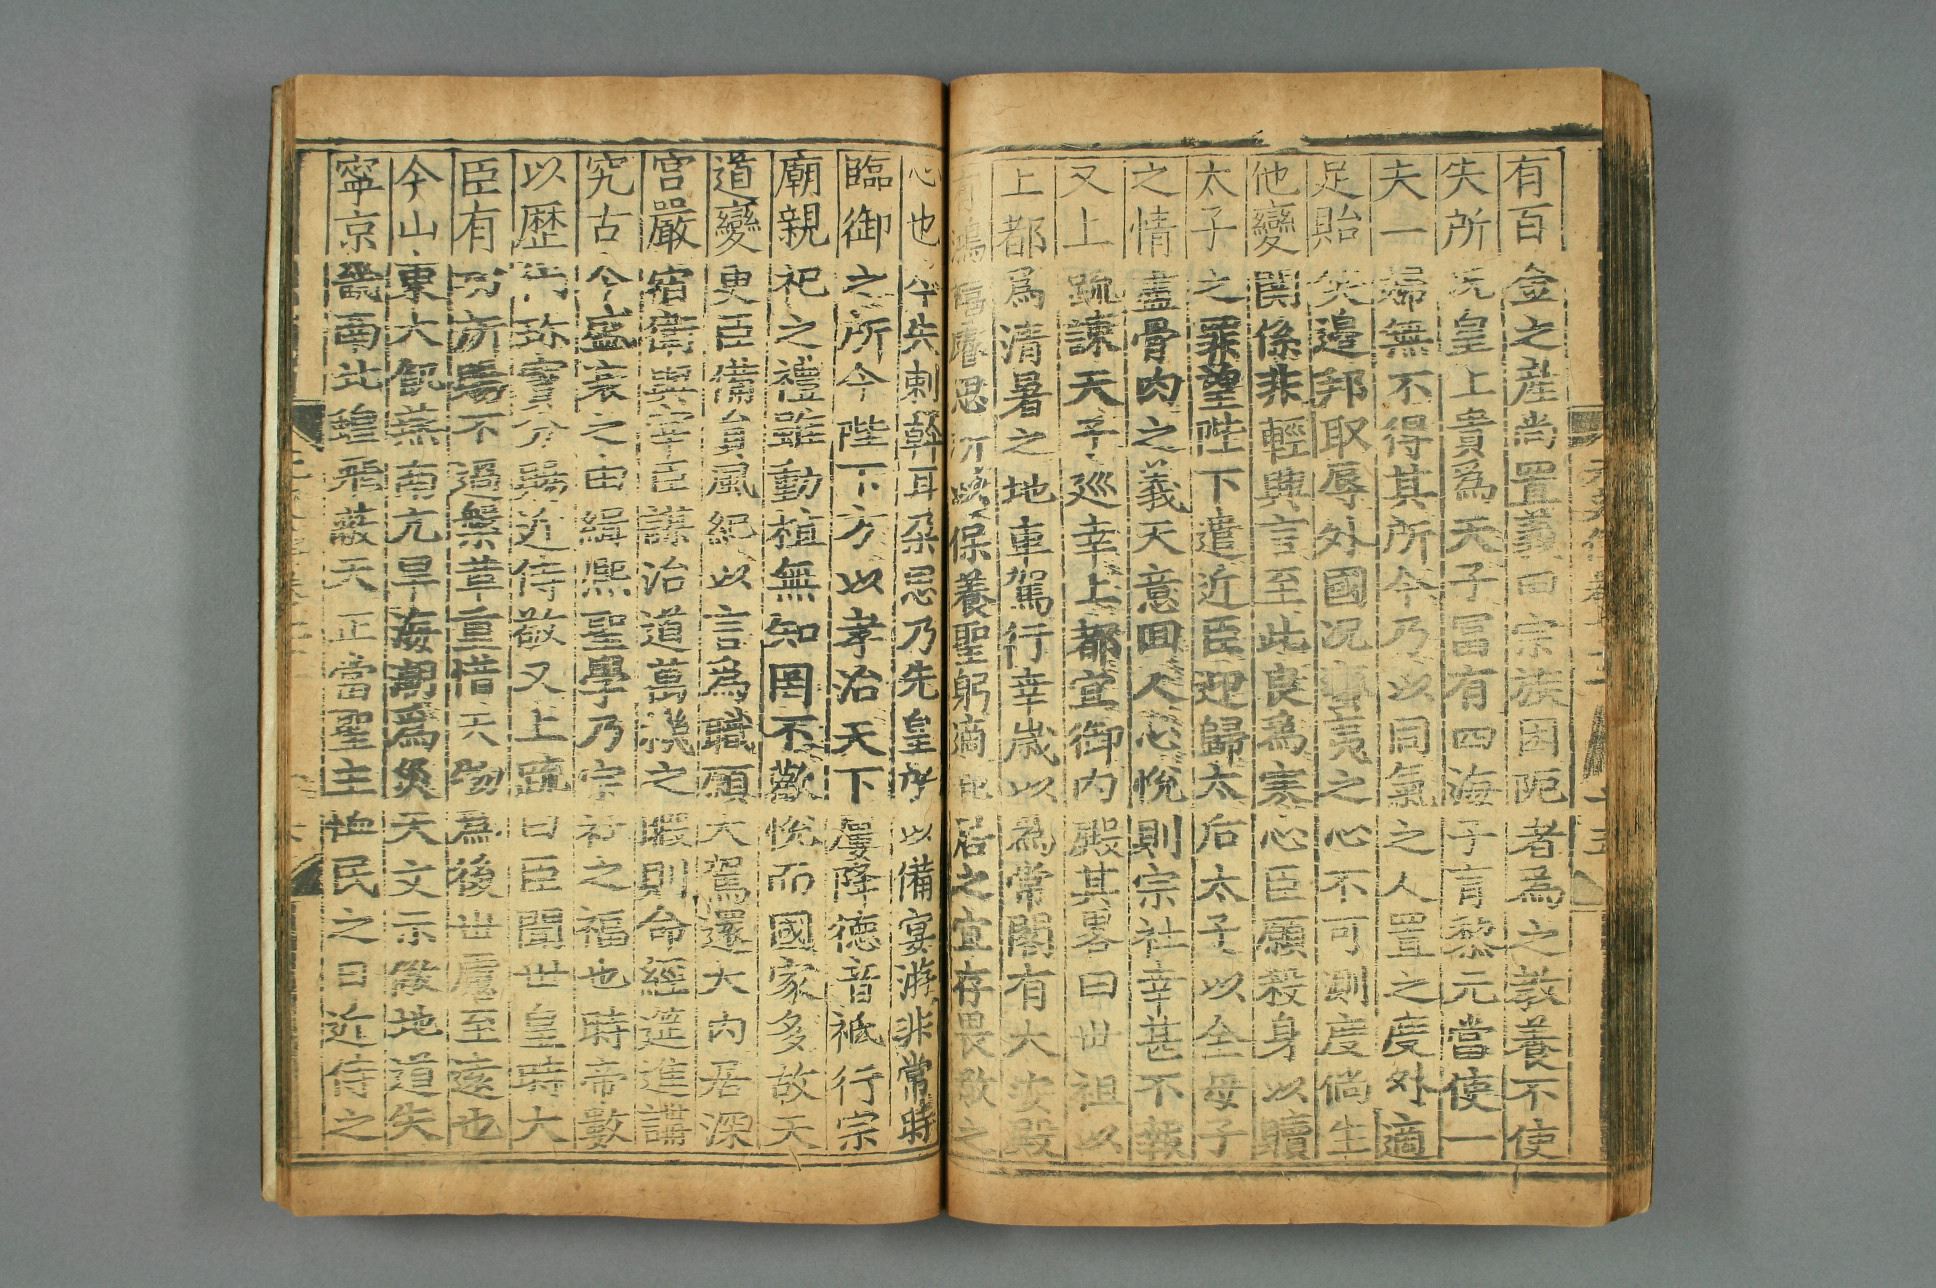 有百金之産尚置義田宗族困阨者為之教養不使
失所況皇上貴爲天子冨有四海子育黎元當使一
夫一婦無不得其所今乃以同氣之人置之度外適
足貽笑邊邦取辱外國况蠻夷之心不可測度倘生
他變関係非輕興言至此良爲寒心臣願殺身以贖
太子之罪望陛下遣近臣迎歸太后太子以全母子
之情盡骨肉之義天意囬人心悅則宗社幸甚不報
又上䟽諌天子巡幸上都宜御内殿其畧曰世祖以
上都爲清暑之地車駕行幸歳以為常閣有大安殿
有鴻禧睿思所以保養聖躬適起居之宜存畏敬之
心也今失剌斡耳朶思乃先皇所以備宴游非常時
臨御之所今陛下方以孝治天下屢降德音祗行宗
廟親祀之禮雖動植無知罔不歡悅而國家多故天
道變更臣備員風紀以言為職願大駕還大内居深
宮嚴宿衛與宰臣謀治道萬機之暇則命經筵進講
究古今盛衰之由緝熙聖學乃宗社之福也時帝數
以歴代珍寳分賜近侍敬又上䟽曰臣聞世皇時大
臣有功所賜不過槃革重惜天物為後世慮至遠也
今山東大飢燕南亢旱海潮爲災天文示儆地道失
寧京畿南北蝗飛蔽天正當聖主恤民之日近侍之